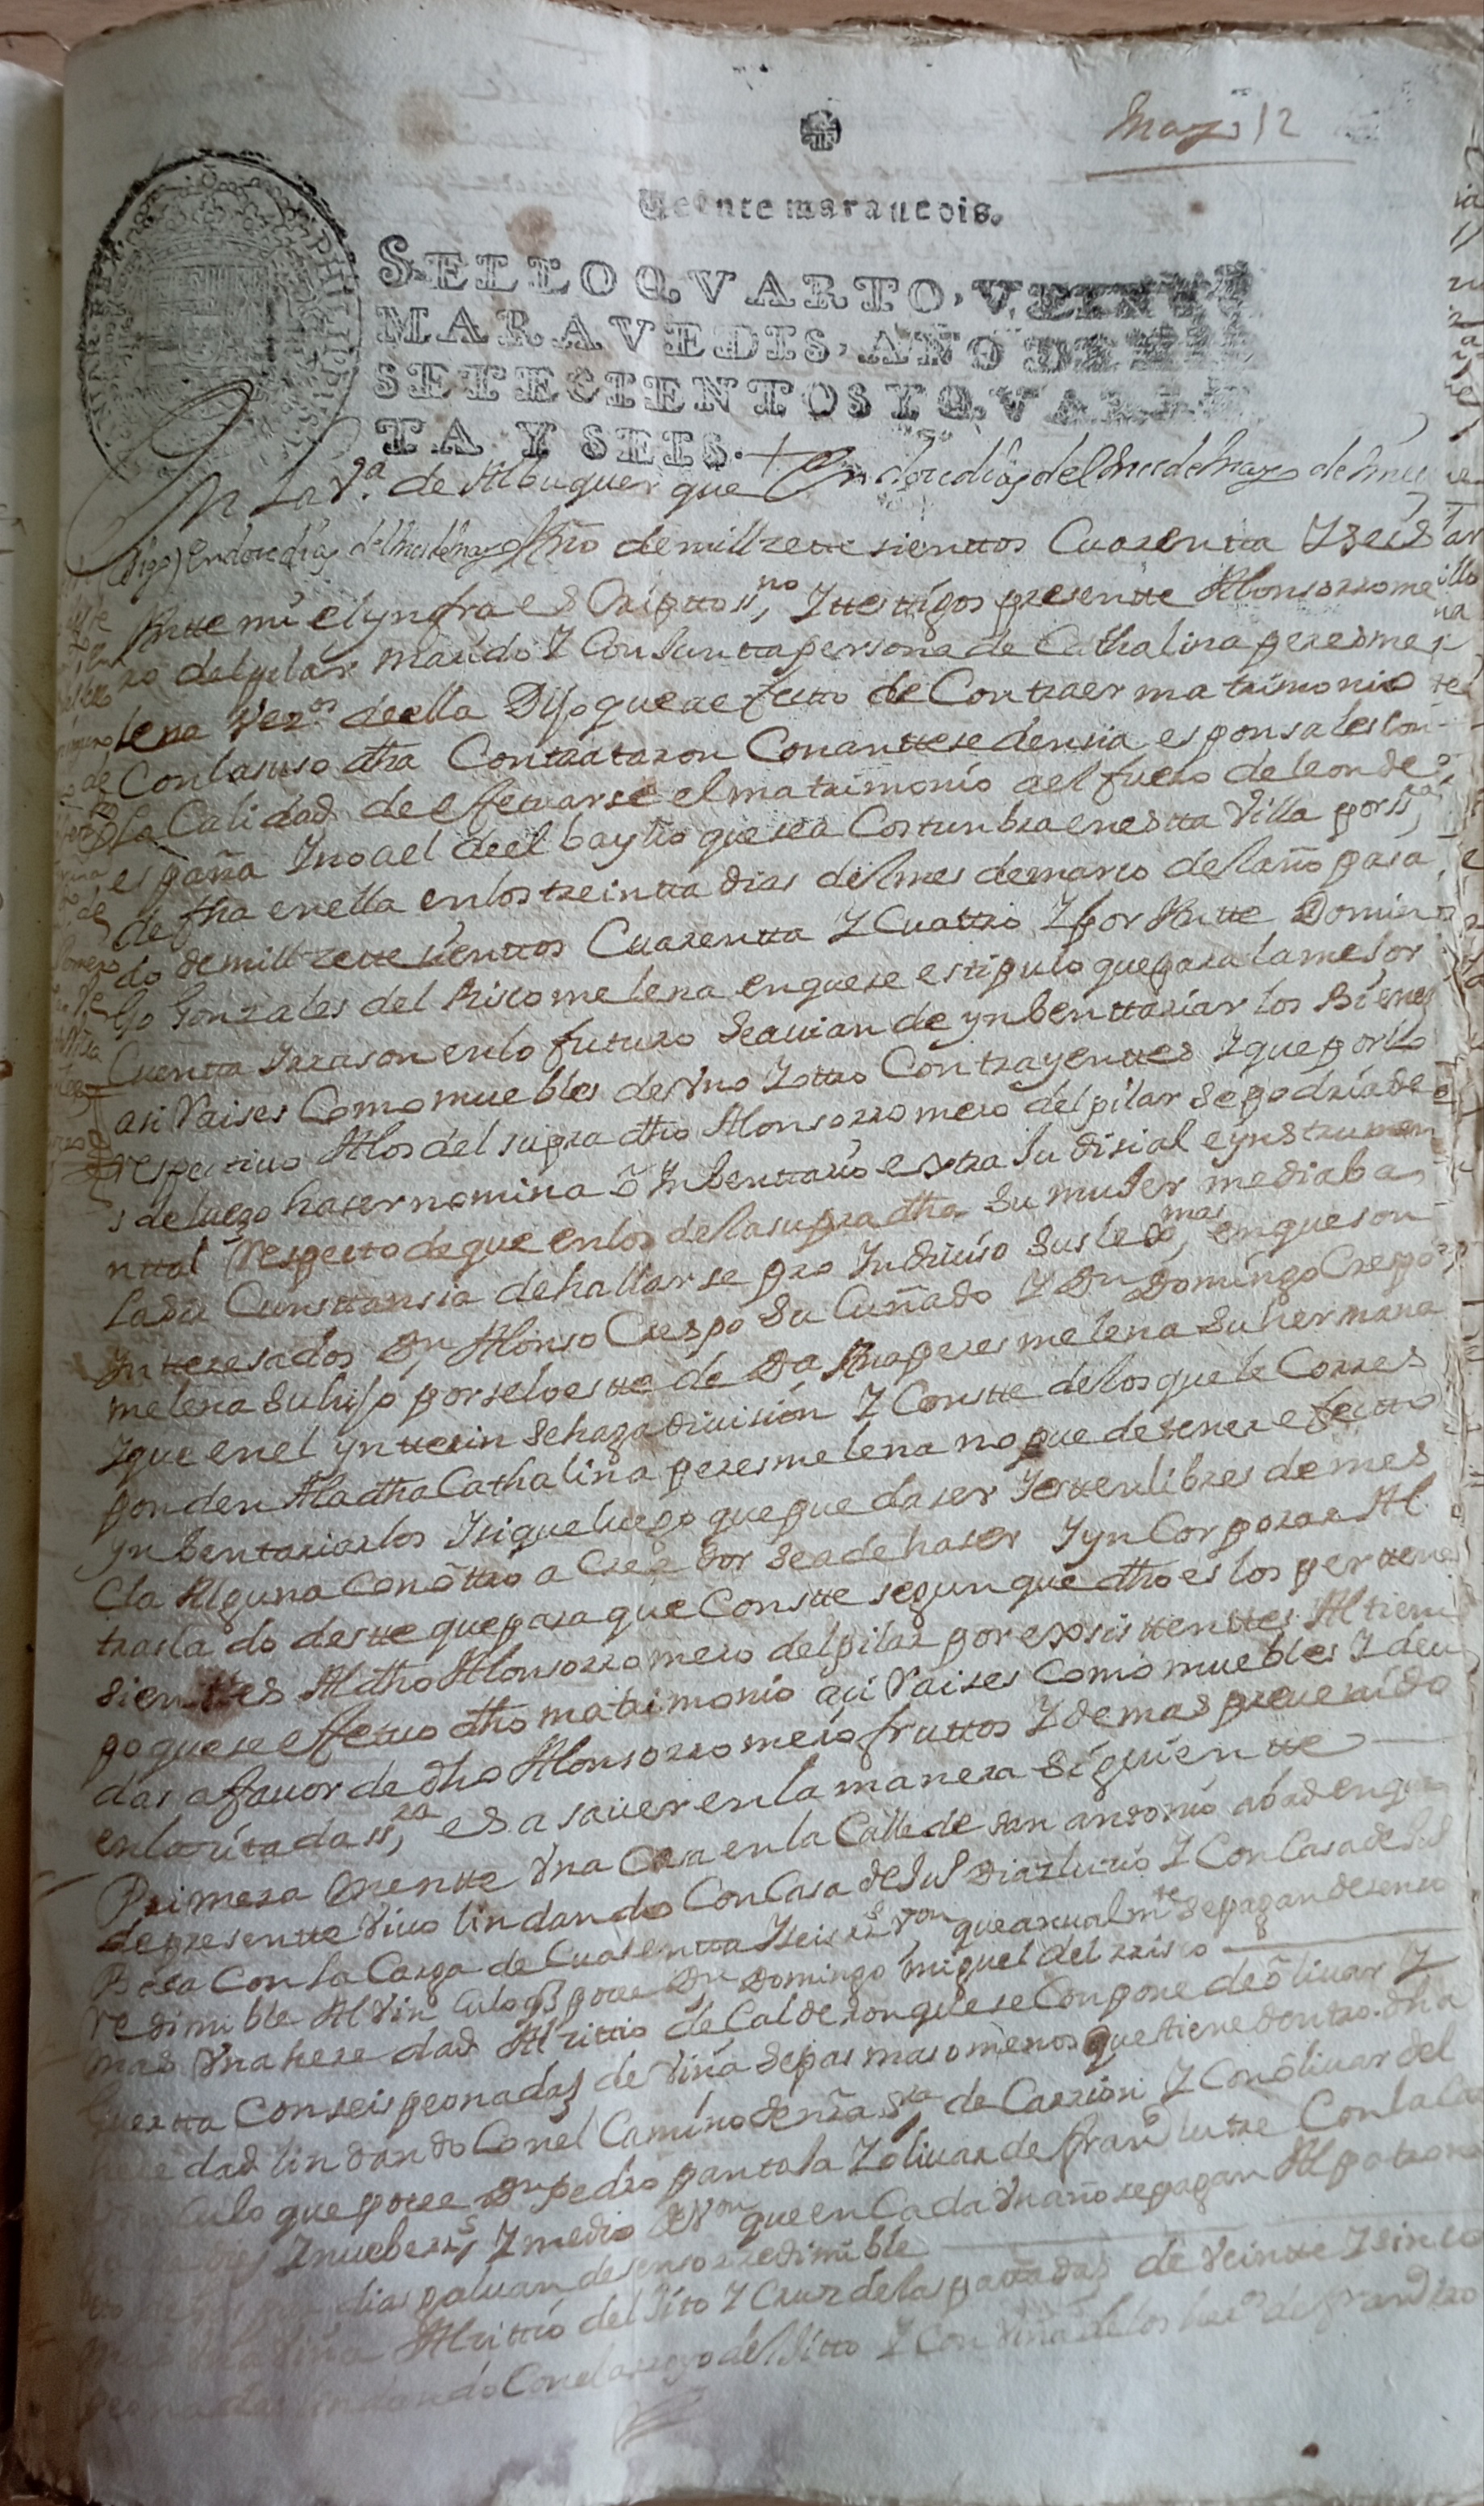 Mayo 12
Veinte maravedis.
SELLO QVARTO, VEINTE
MARAVEDIS, AÑO DE MIL
SETECIENTOS Y QVAREN
TA Y SEIS.
En la Va. de Alburquerque En dose dias del mes de mayo de mill
(digo) en dose dias del mes de mayo Año de mill zette sienttos Cuarentta Y seis
Antte mi el ynfraescripto ssno, Y testigos presentte Alonso rrome
ro del pilar marido Y Conjunta persona de Cathalina peres me
lena Vezos de ella Dijo que a efetto de Contraer matrimonio
Con la suso dha Contrataron Con anttesedensia esponsales con
la Calidad de efetuarse el matrimonio a el fuero de leon de
españa Y no a el de el baylio que sea Costunbra en estta Villa por ssa,
de fha en ella en los treintta dias del mes de marco del año pasa
do de mill zette sienttos Cuarentta Y Cuattro Y por Antte Domin
go Gonzales del Risco melena en que se estipulo que para la mejor
Cuentta Y rrason en lo futuro se auian de ynbenttariar los bienes
asi Raises Como muebles de Vno Y otro Contrayenttes Y que por lo
respectiuo A los del supra dho Alonso rromero del pilar se podria de
s de luego haser nomina o Ynbenttario extra Judisial e ynstrumen
ttal Respecto de que en los de la supra dha su mujer mediaba
la da Cunsttansia de hallarse pro Yndiuiso sus lexmas, en que son
Ynteresados Dn Alonso Crespo su Cuñado Y Dn Domingo Crespo
melena su hijo por se lo este de Da Ana peres melena su hermana
Y que en el ynterin se haga diuision Y Constte de los que le Corres
ponden A la dha Cathalina peres melena no puede tener efectto
ynbentariarlos Y si que luego que queda ser Y estten libres de mes
cla Alguna Con otro a Creedor se a de haser Y yn Corporar Al
traslado destte que para que Constte segun que dho es los pertene
sienttes Al dho Alonso rromero del pilar por exsisttenttes Al tiem
po que se efetuo dho matrimonio asi Raises Como muebles Y deu
das a fauor de dho Alonso rromero fruttos Y demas preuenido
en la sitada ssra, es a sauer en la manera siguientte
Primera mentte Vna Casa en la Calle de san antonio abad en que
de presentte Viuo lindando Con Casa de Jul Dias lusio Y Con Casa de Jul
Bosa Con la Carga de Cuarentta Y seis rrs Von que anualmte se pagan de senso
redimible Al Vinculo q posee Dn Domingo miguel del rrisco
mas Vna heredad Al sittio de Calderon que se Conpone de oliuar Y
huertta Con seis peonadas de Viña sepas mas o menos que tiene dentro dha
heredad lindando Con el Camino de nra Sra de Carrion Y Con oliuar del
Vinculo que posee Dn Pedro pantoja Y oliuar de fran lutre Con la Ca
Y nuebe rrs, Y medio de Von que en Cada Vn año se pagan Al patrono
dias galuan de senso rredimible
mas Vna Viña Al sittio del Jito Y Cruz de las pattadas de Veintte Y sinco
peonadas lindando Con el arroyo del Jitto Y Con Viña de los hers de